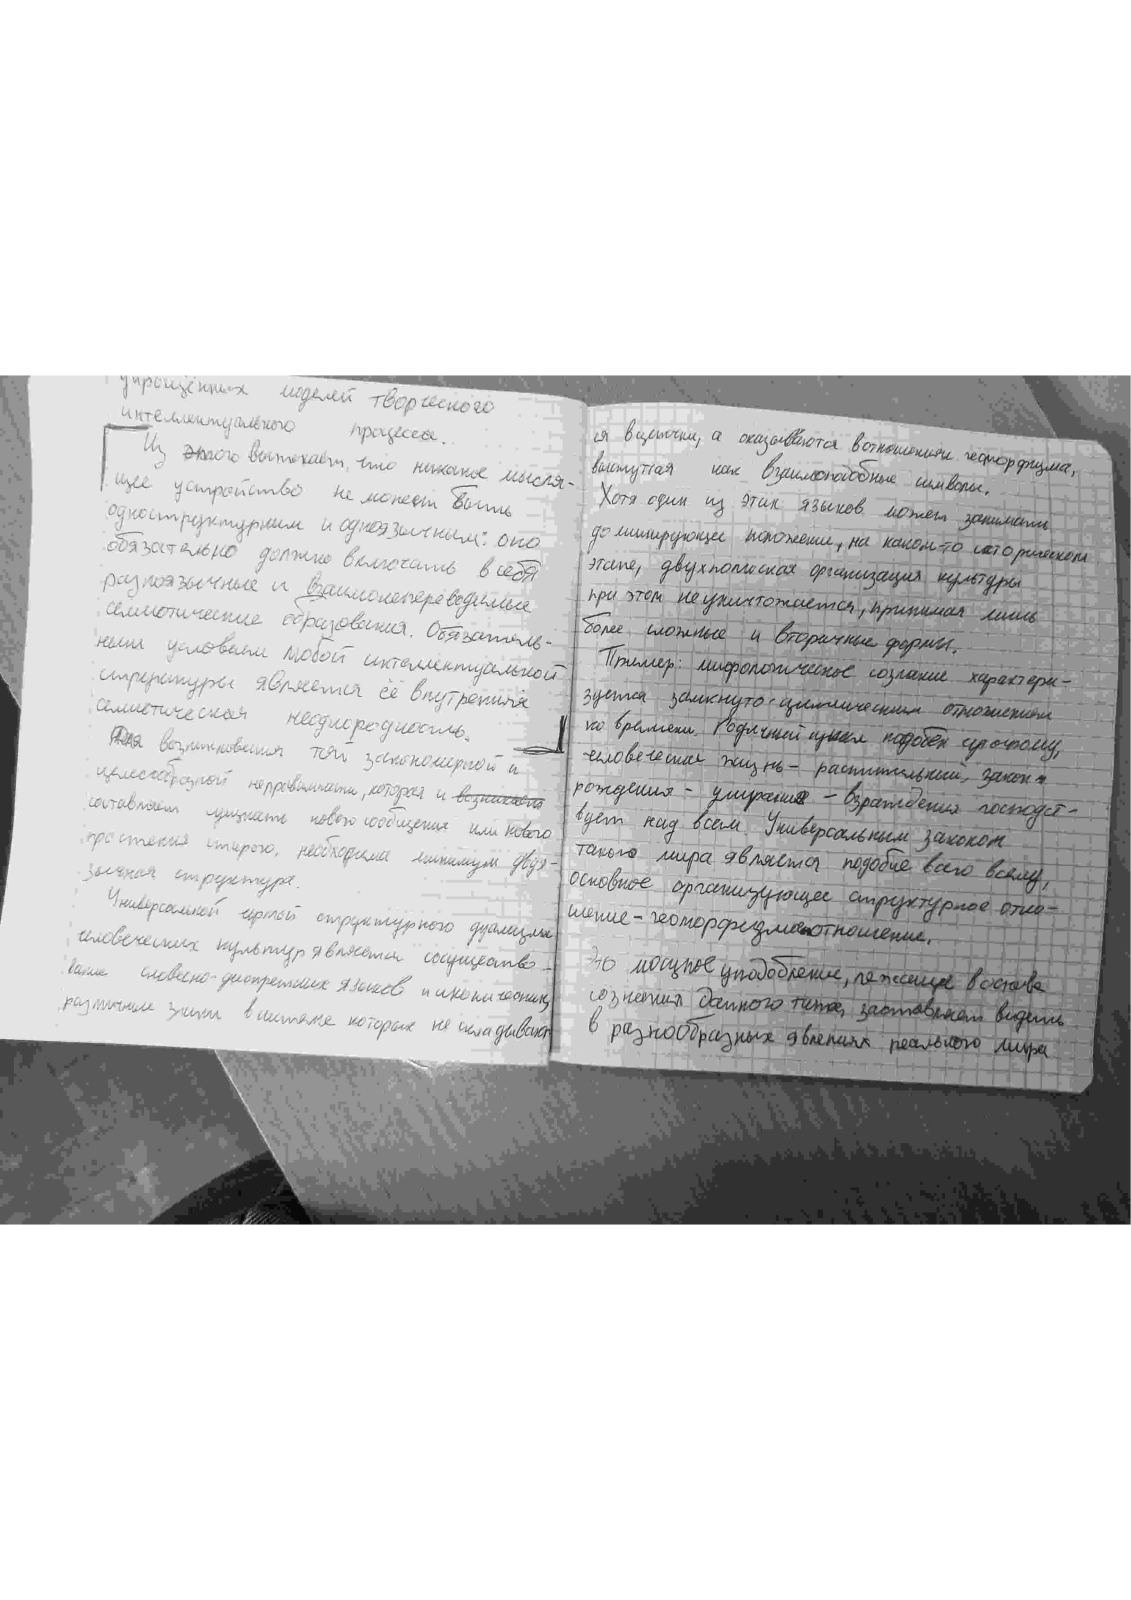 упрощённых моделей творческого
интеллектуального процесса.
Из этого вытекает, что никакое мысля-
щее устройство не может быть
одноструктурным и одноязычным: оно
обязательно должно включать в себя
разноязычные и взаимонепереводимые
семиотические образования. Обязатель-
ным условием любой интеллектуальной
структуры является её внутренняя
семиотическая неоднородность.
Для возникновения той закономерной и
целесообразной неправильности, которая и возникает
составляет сущность нового сообщения или нового
прочтения старого, необходима минимум двуя-
зычная структура.
Универсальной чертой структурного дуализма
человеческих культур является сосущество-
вание словесно-дискретных языков и иконических,
различные знаки в системе которых не складывают
ся в цепочки, а оказываются в отношении гоморфизма,
выступая как взаимоподобные символы.
Хотя один из этих языков может занимать
доминирующее положение, на каком-то историческом
этапе, двухполюсная организация культуры
при этом не уничтожается, принимая лишь
более сложные и вторичные формы.
Пример: мифологическое сознание характери-
зуется замкнуто-циклическим отношением
ко времени. Годичный цикл подобен суточному,
человеческая жизнь - растительной, закон
рождения - умирания - возрождения господст-
вует над всем. Универсальным законом
такого мира является подобие всего всему,
основное организующее структурное отно-
шение - гоморфизма отношение.
Это мощное уподобление, лежащее в основе
сознания данного типа, заставляет видеть
в разнообразных явлениях реального мира